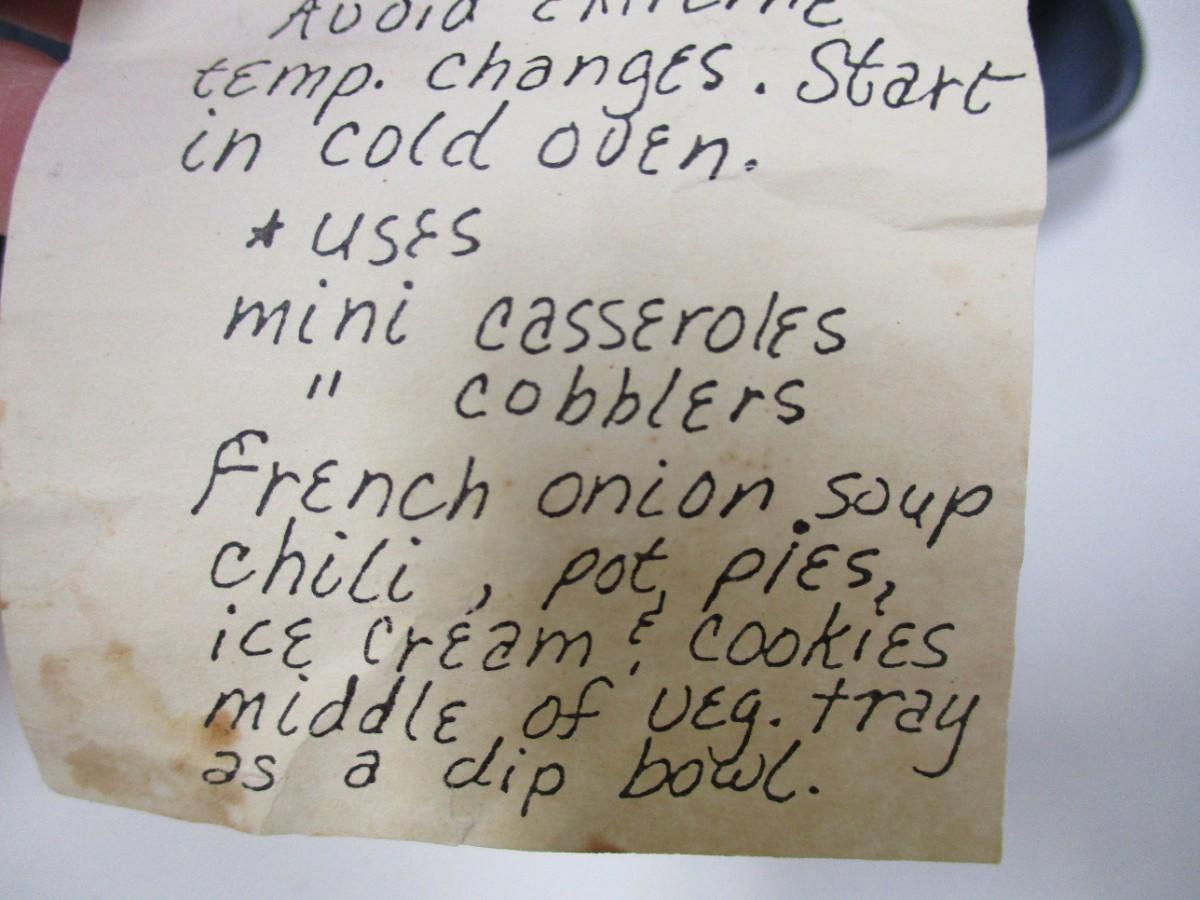 Avoid extreme
temp. changes. Start
in cold oven.
* uses
mini casseroles
" cobblers
French onion soup
chili, pot pies,
ice cream & cookies
middle of veg. tray
as a dip bowl.